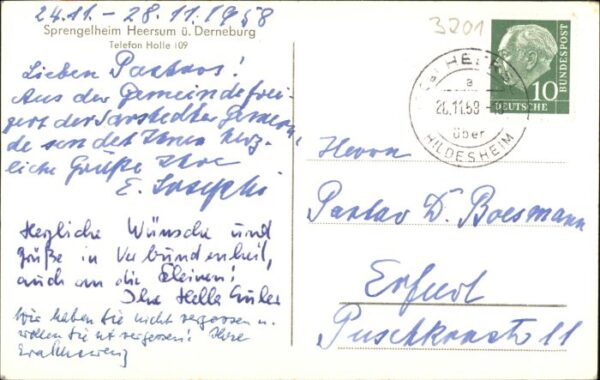 24.11 - 28.11.1958
Sprengelheim Heersum ü. Derneburg
Telefon Holle 109
Lieben Pastors!
Aus der Gemeindefrei-
zeit der Sarstedter Gemein-
de sendet Ihnen herz-
liche Grüße Ihre
E. Josephi
Herzliche Wünsche und
Grüße in Verbundenheit,
auch an die Kleinen!
Ihre Hella
Wir haben Sie nicht vergessen u.
wollen Sie nicht vergessen! Ihre
3201
a
26.11.58
über
HILDESHEIM
10
DEUTSCHE
BUNDESPOST
Herrn
Pastor D. Boesmann
Erfurt
Puschkinstr 11